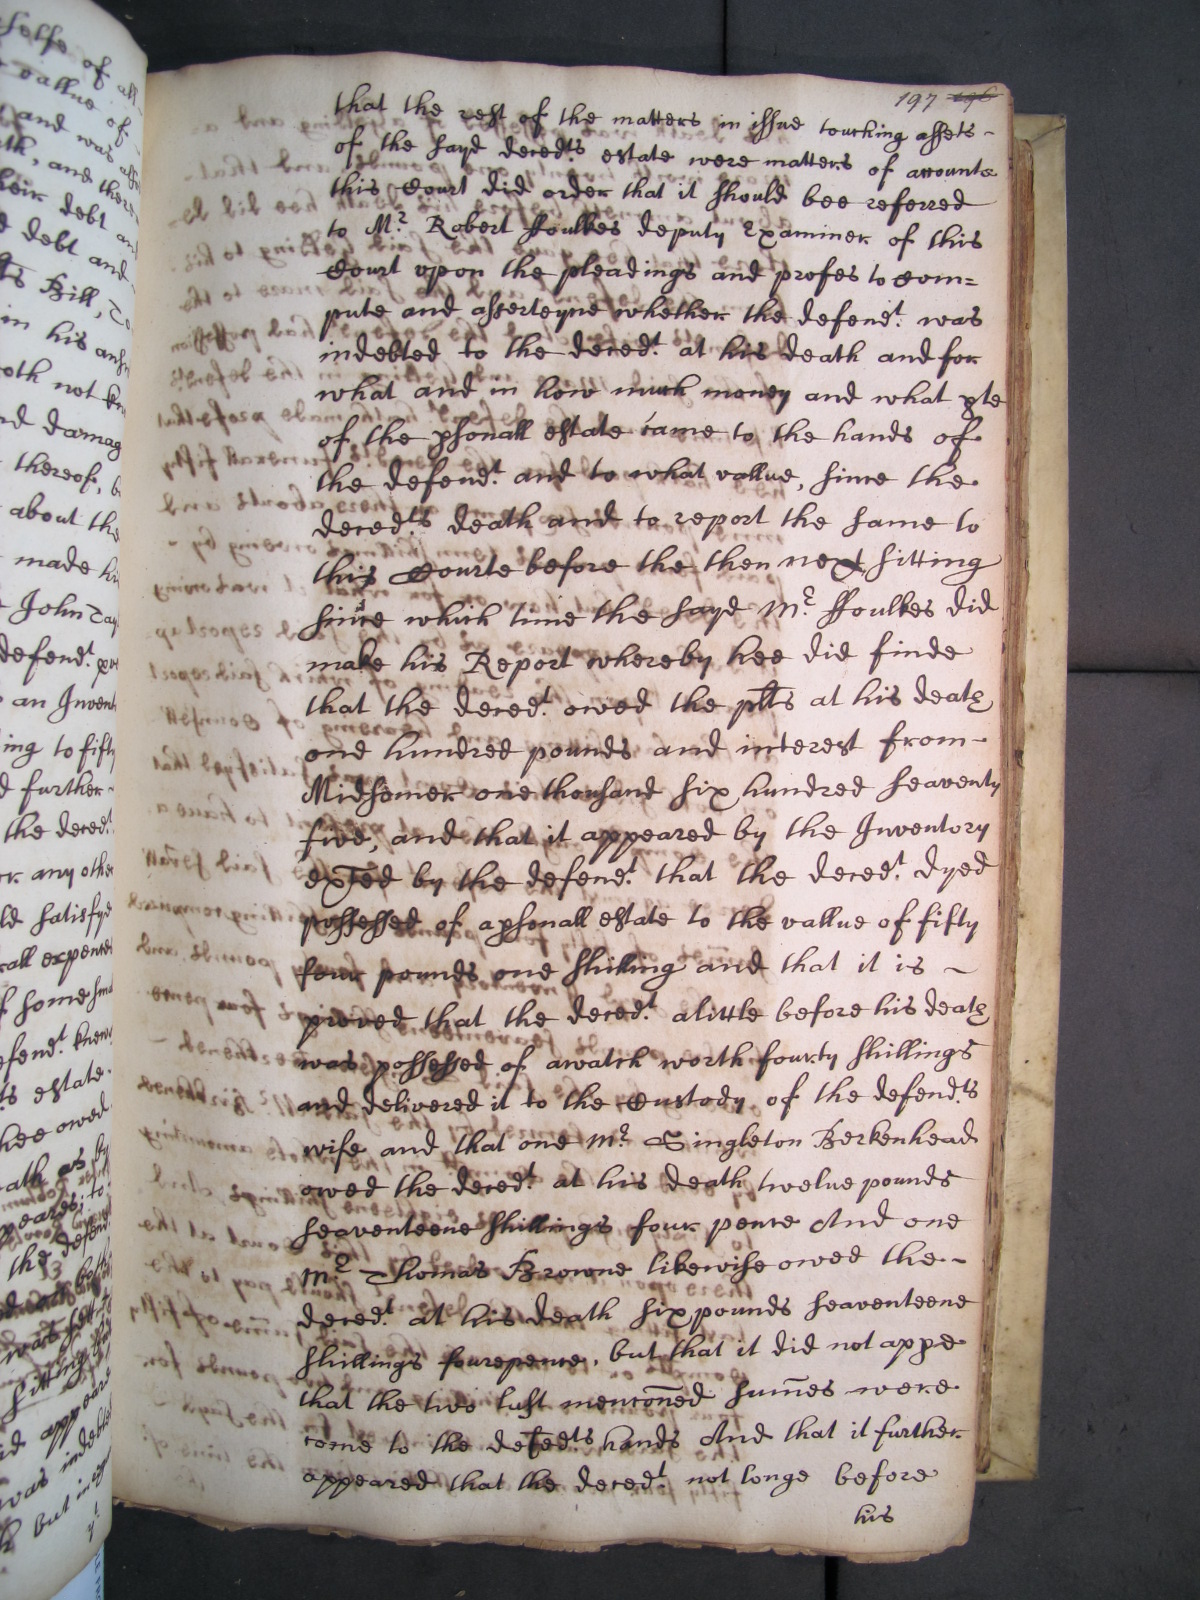 197 196
that the rest of the matters in issue touching assets
of the sayd deced.ts estate were matters of accounts
this Court did order that it should bee referred
to M.r Robert ffoulkes deputy Examiner of this
Court upon the pleadings and profes to Com=
pute and asserteyne whether the defend.t was
indebted to the deced.t at his death and for
what and in how much money and what pte
of the psonall estate came to the hands of
the defend.t and to what vallue, since the
deced.ts death and to report the same to
this Courte before the then next sitting
since which time the sayd M.r ffoulkes did
make his Report whereby hee did finde
that the deced.t owed the plts at his death
one hundred pounds and interest from
Midsomer one thousand six hundred seaventy
five, and that it appeared by the Inventory
exted by the defend.t that the deced.t dyed
possessed of a psonall estate to the vallue of fifty
four pounds one shilling and that it is
proved that the deced.t a little before his death
was possessed of a watch worth fourty shillings
and delivered it to the Custody of the defend.ts
wife and that one M.r Singleton Berkenhead
owed the deced.t at his death twelve pounds
seaventeene shillings four pence And one
M.r Thomas Browne likewise owed the
deced.t at his death six pounds seaventeene
shillings fourepence, but that it did not appe
that the two last mencõned sum̃es were
come to the defed.ts hands And that it further
appeared that the deced.t not longe before
his